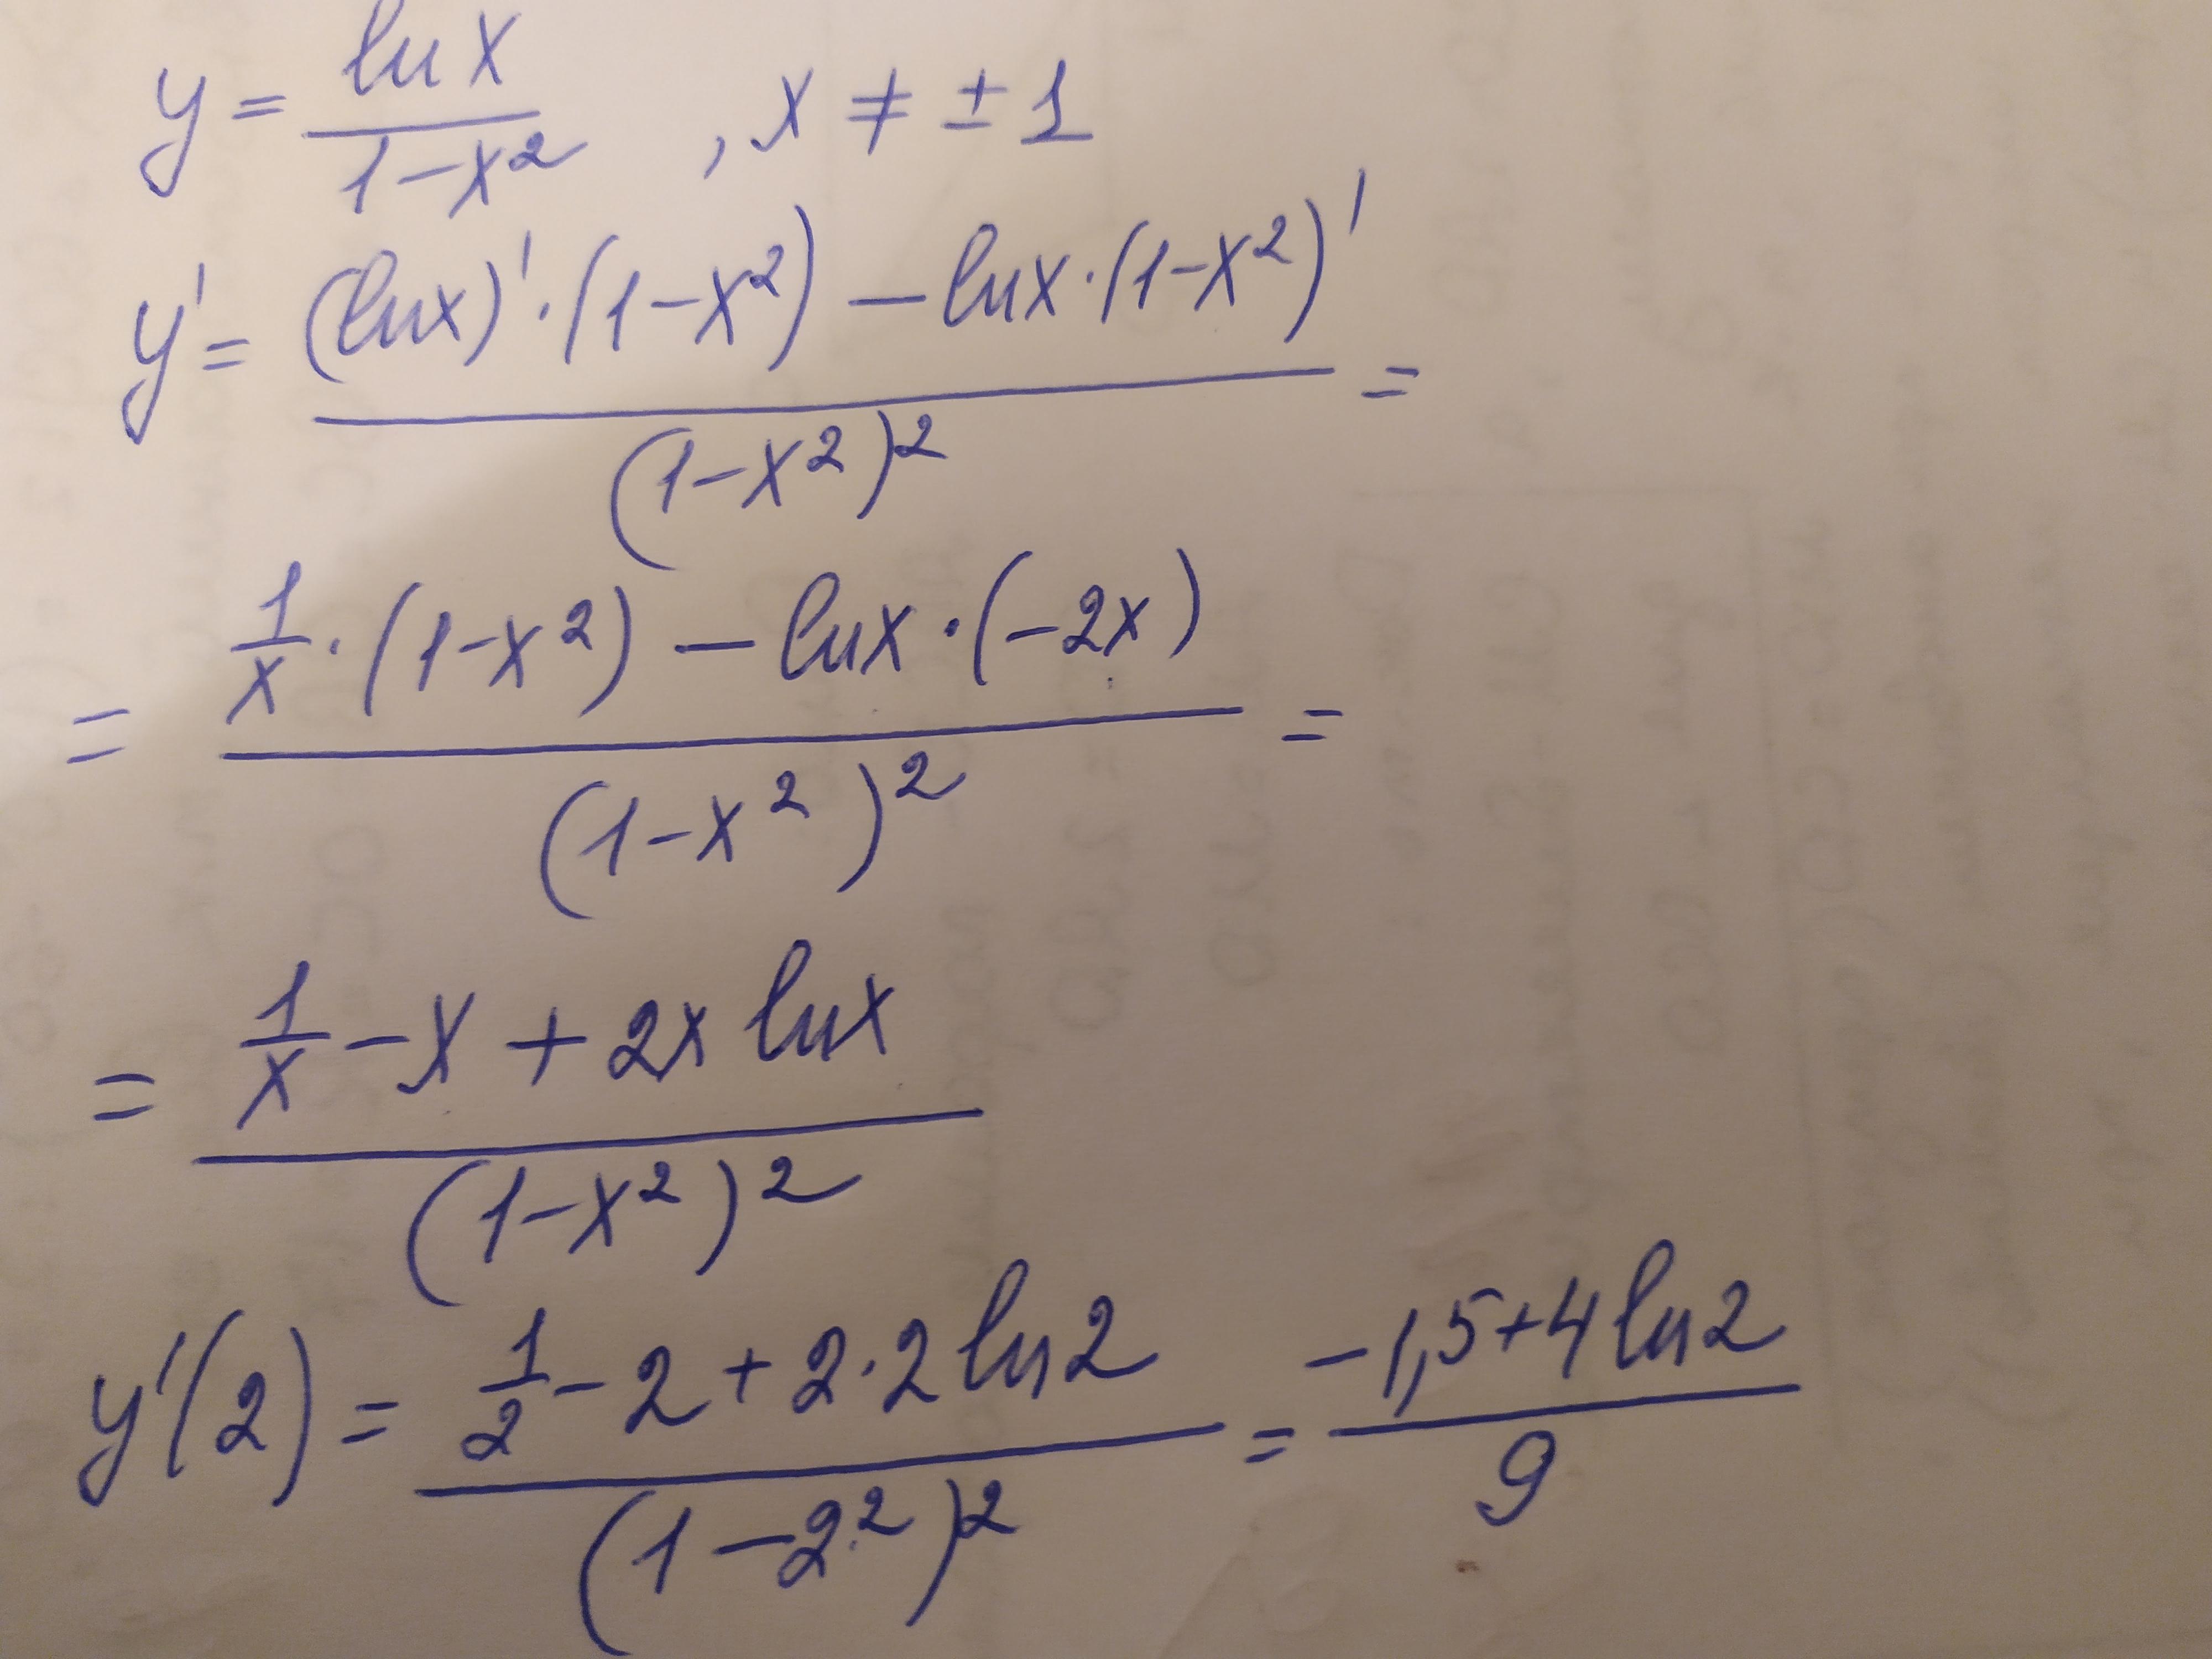 y = ln x / (1-x²) , x ≠ ± 1
y' = ((ln x)'·(1-x²) - ln x·(1-x²)') / (1-x²)² =
= (1/x·(1-x²) - ln x·(-2x)) / (1-x²)² =
= (1/x - x + 2x ln x) / (1-x²)²
y'(2) = (1/2 - 2 + 2·2 ln 2) / (1-2²)² = (-1,5+4 ln 2) / 9